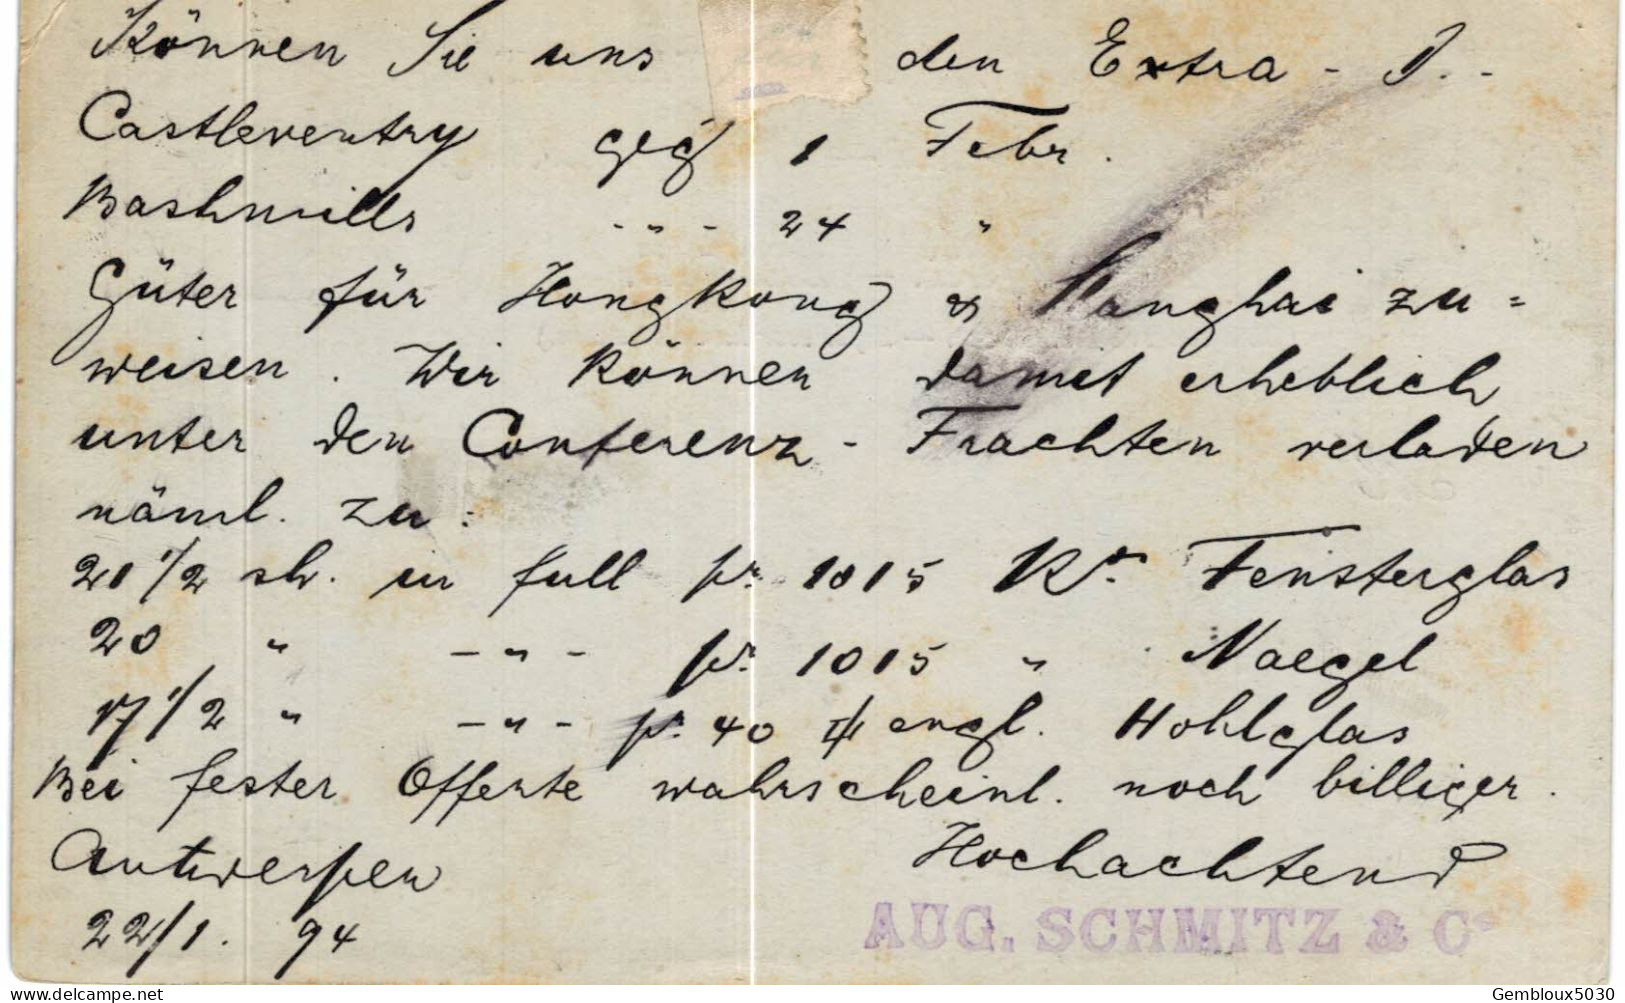 Können Sie uns den Extra -
Castleventry geg 1 Febr.
Bashmills - " - 24 "
Güter für Hongkong & Shanghai zu=
weisen. Wir können damit erheblich
unter den Conferenz - Frachten verladen
näml. zu:
21 1/2 sh. in full pr 1015 Ko. Fensterglas
20 " - " - pr 1015 " Naegel
17 1/2 " - " - pr. 40 engl. Hohlglas
Bei fester Offerte wahrscheinl. noch billiger.
Antwerpen Hochachtend
22/1. 94 AUG. SCHMITZ & Co
delcampe.net Gembloux5030